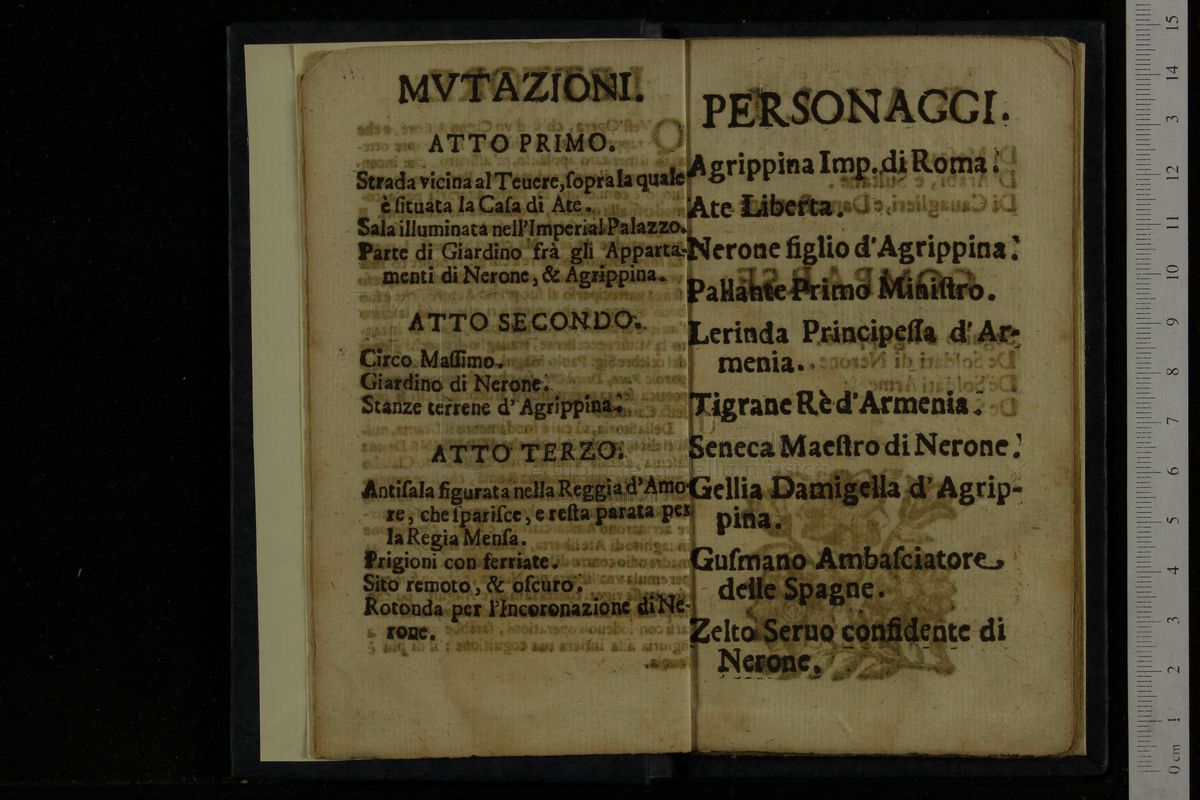 MVTAZIONI.
ATTO PRIMO.
Strada vicina al Teuere, ſopra la quale
è ſituata la Caſa di Ate.
Sala illuminata nell'Imperial Palazzo.
Parte di Giardino frà gli Apparta-
menti di Nerone, & Agrippina.
ATTO SECONDO.
Circo Maſſimo.
Giardino di Nerone.
Stanze terrene d'Agrippina.
ATTO TERZO.
Antiſala figurata nella Reggia d'Amo-
re, che ſpariſce, e reſta parata per
la Regia Menſa.
Prigioni con ferriate.
Sito remoto, & oſcuro.
Rotonda per l'Incoronazione di Ne-
rone.
PERSONAGGI.
Agrippina Imp. di Roma.
Ate Liberta.
Nerone figlio d'Agrippina.
Pallante Primo Miniſtro.
Lerinda Principeſſa d'Ar-
menia.
Tigrane Rè d'Armenia.
Seneca Maeſtro di Nerone.
Gellia Damigella d'Agrip-
pina.
Guſmano Ambaſciatore
delle Spagne.
Zelto Seruo confidente di
Nerone.
15
14
3
12
11
10
9
8
7
6
5
4
3
2
1
0 cm